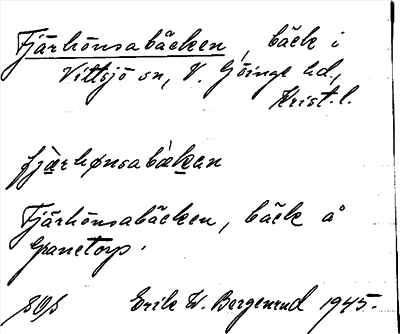 Tjärhönsabäcken, bäck i
Vittsjö sn, V. Göinge hd.,
Krist. l.
fjärhønsabäkan
Tjärhönsabäcken, bäck å
Granetorp.
Erik W. Bergenrud 1945.